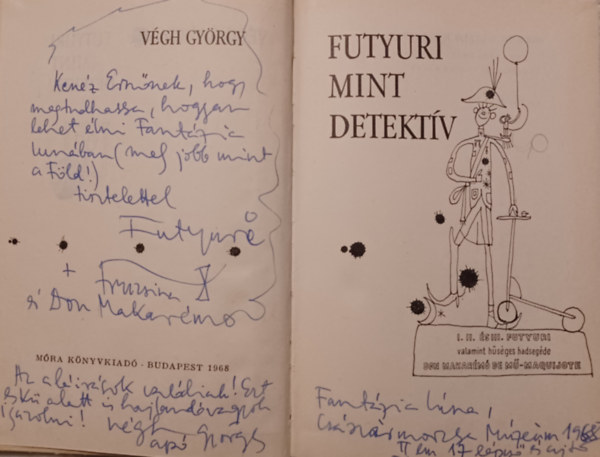 VÉGH GYÖRGY
Kenéz Ernőnek, hogy
megtudhassa, hogyan
lehet élni Fantázia
lunában (mely jobb mint
a Föld!)
tisztelettel
Futyuri
+ Fruzsina
és Don Makarémo
MÓRA KÖNYVKIADÓ · BUDAPEST 1968
Az aláírások valódiak! Ezt
eskü alatt is hajlandó vagyok
igazolni! Végh
apó György
FUTYURI
MINT
DETEKTÍV
I. II. ÉS III. FUTYURI
valamint hűséges hadsegéde
DON MAKARÉMÓ DE MŰ-MAQUIJOTE
Fantázia luna,
Császármorzsa Múzeum 1968
II em 17 lépcső